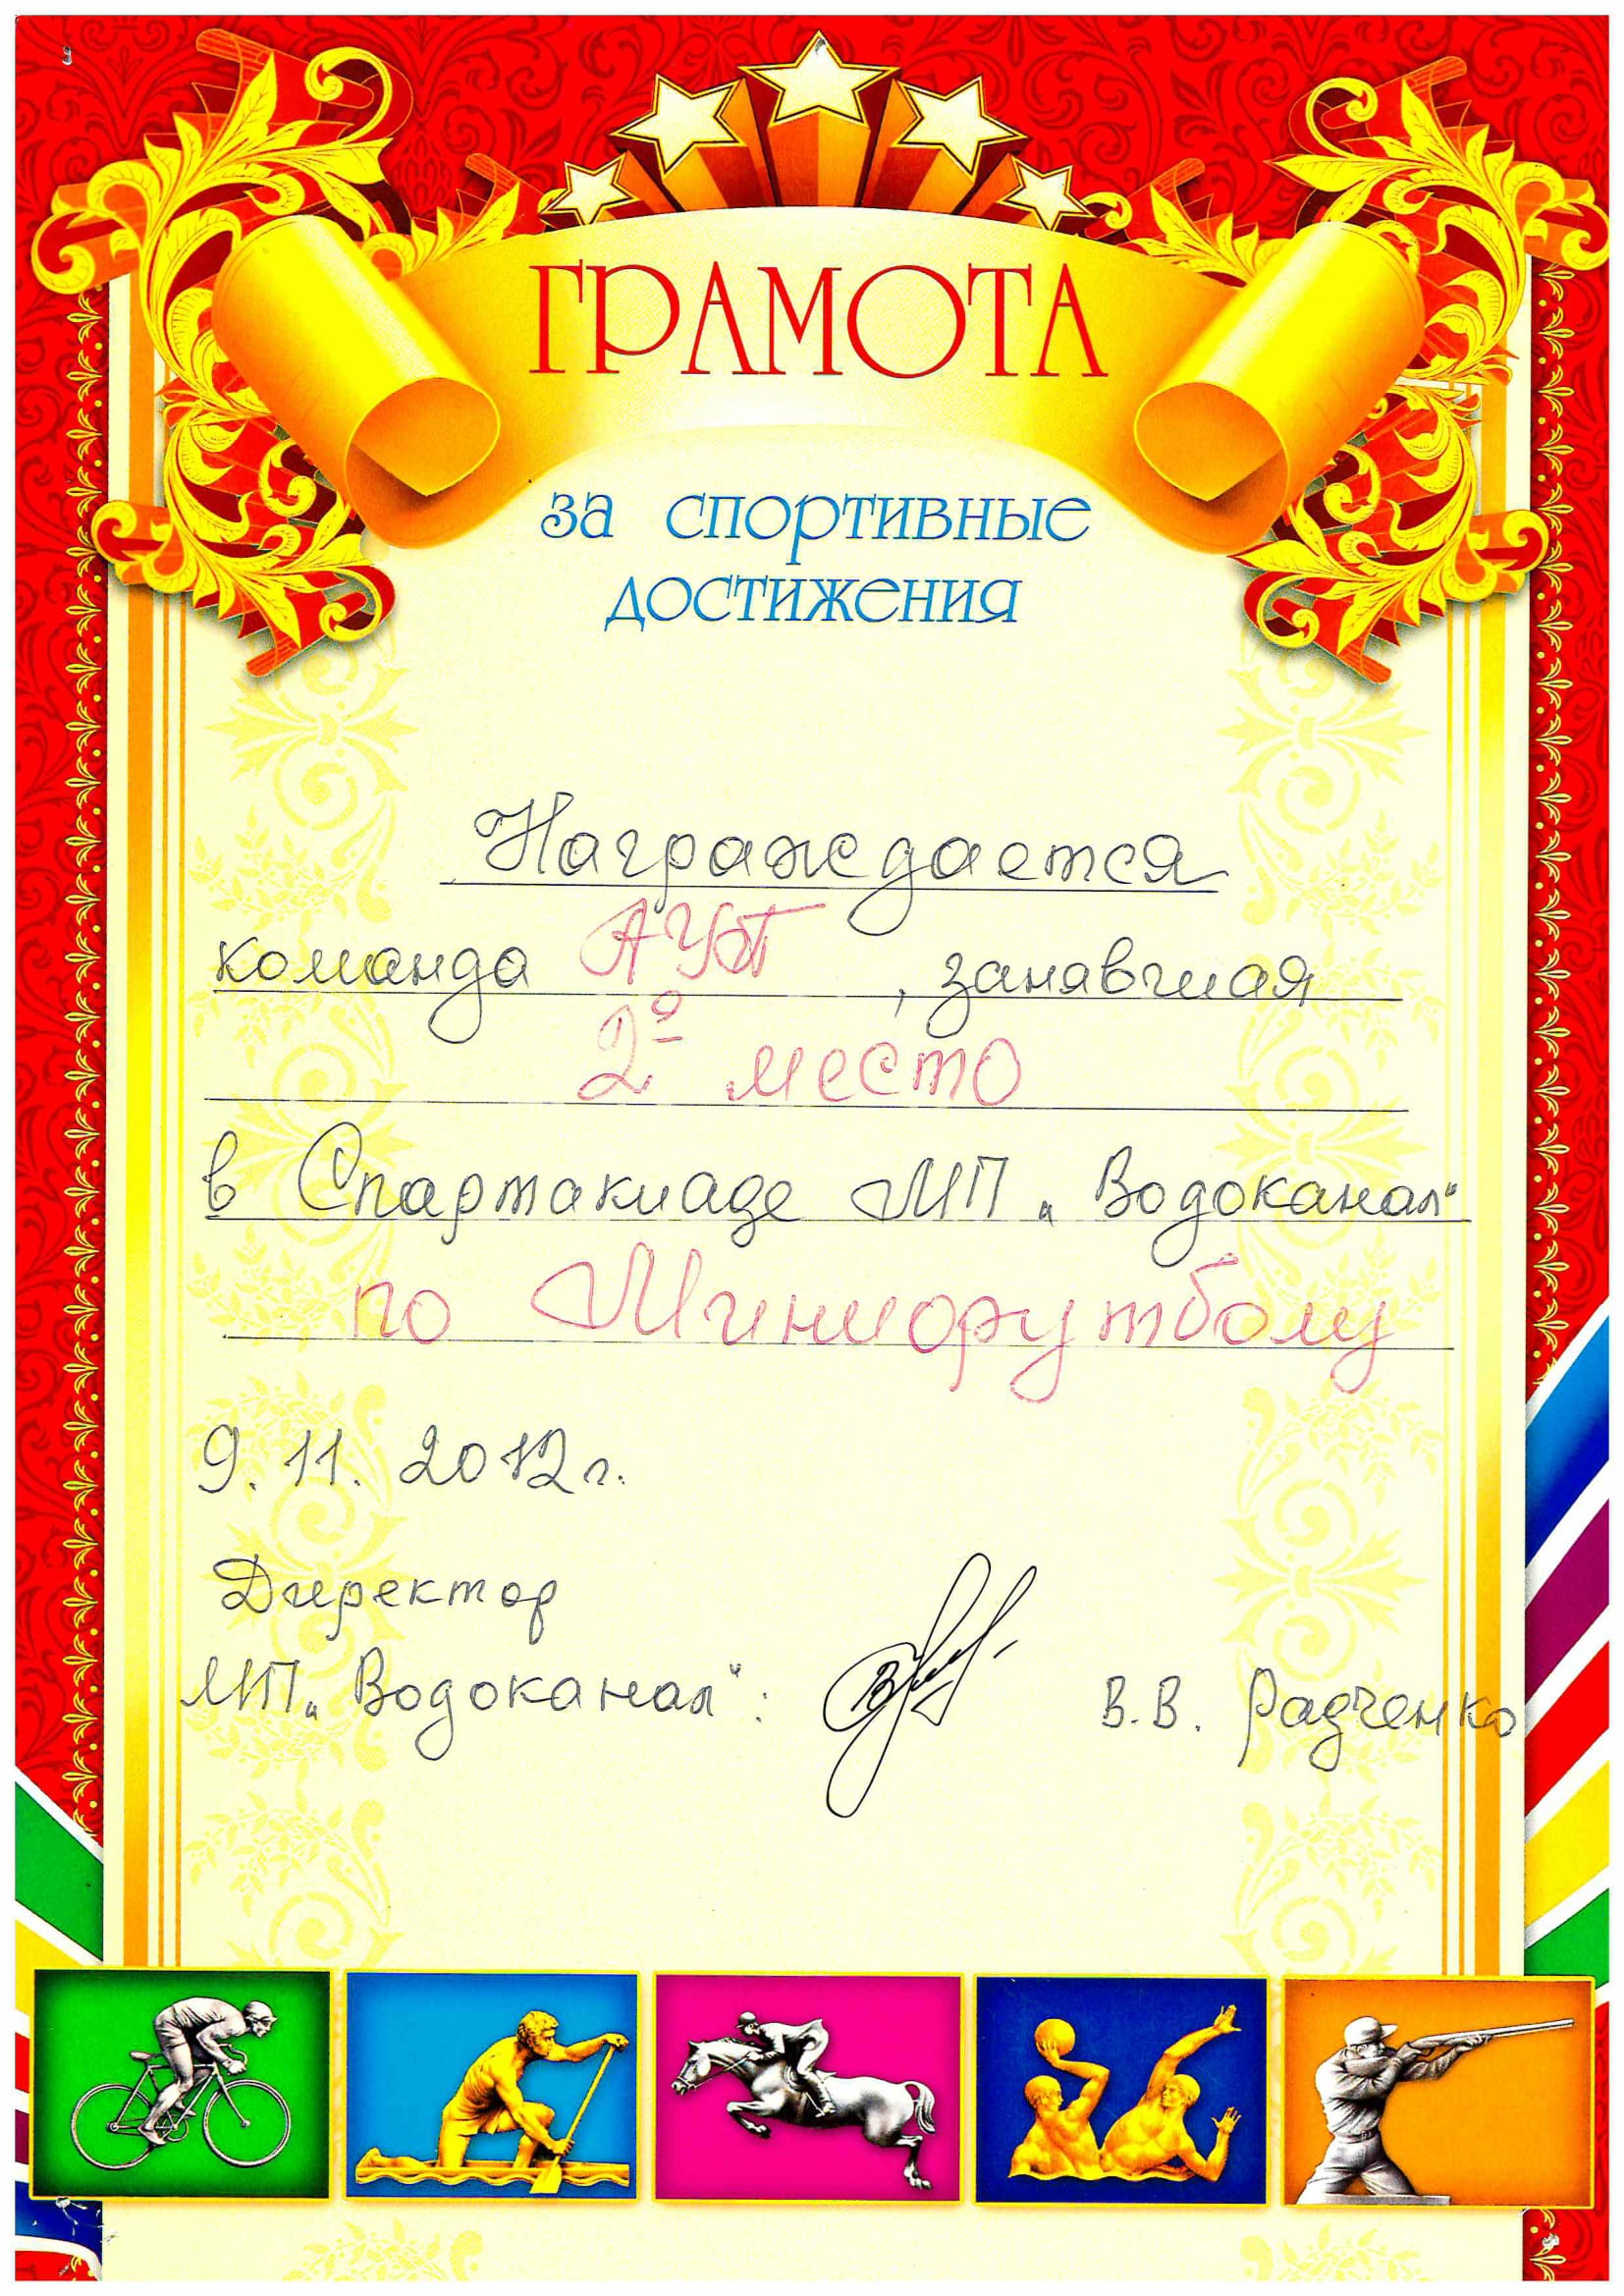 ГРАМОТА
за спортивные
достижения
Награждается
команда АУП, занявшая
2º место
в Спартакиаде МП „Водоканал“
по Минифутболу
9.11.2012г.
Директор
МП „Водоканал“: В.В. Радченко